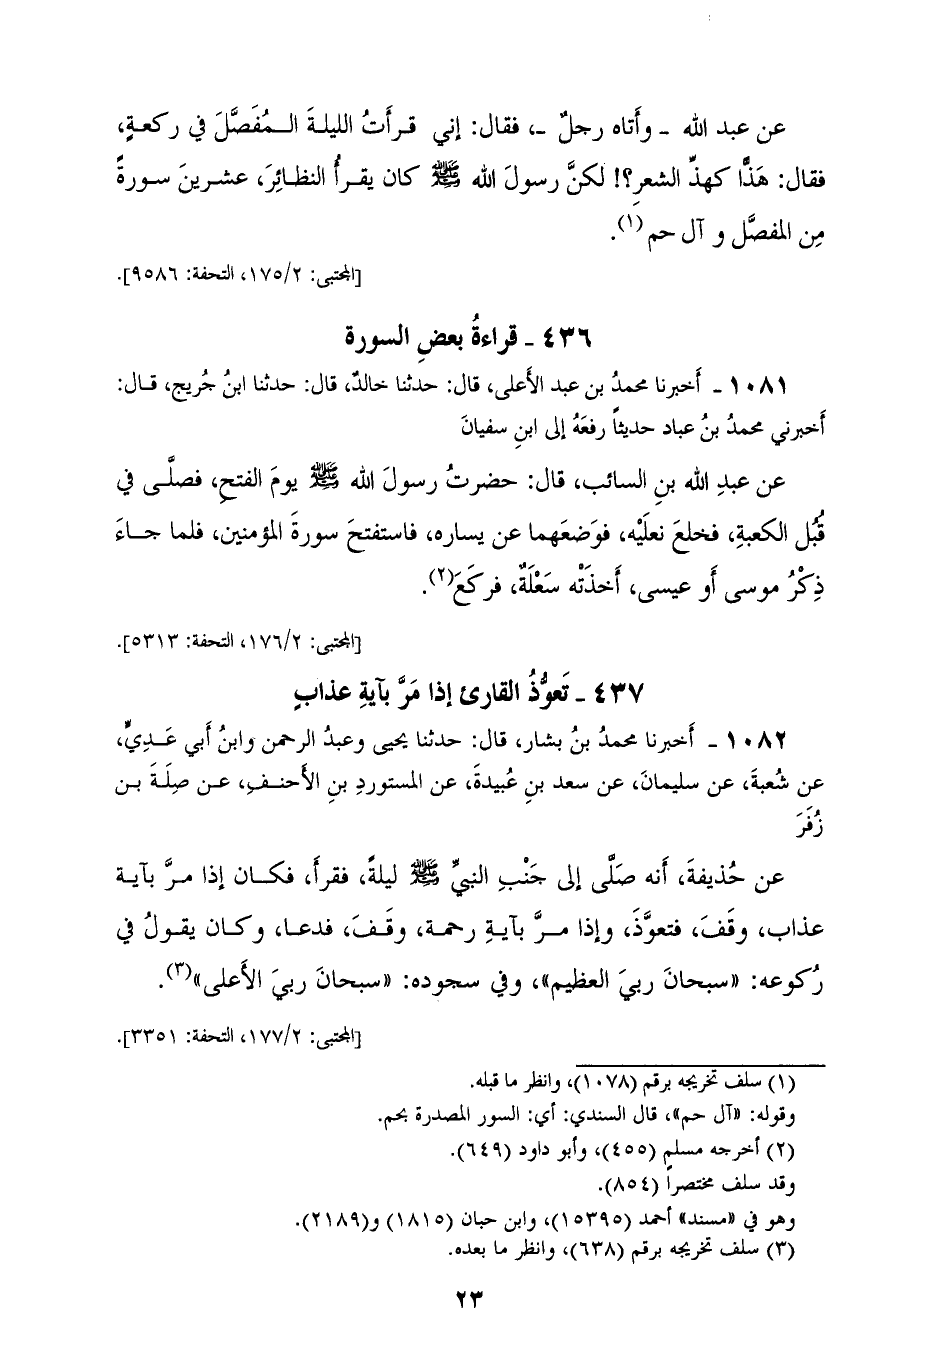 عن عبد الله ـ وأَتاه رجلٌ ـ، فقال: إني قرأَتُ الليلةَ المُفَصَّلَ في ركعةٍ،
فقال: هَذّاً كهذِّ الشعرِ؟! لكنَّ رسولَ الله ﷺ كان يقرأُ النظائرَ، عشرينَ سورةً
مِن المفصَّل و آل حم(١).
[المجتبى: ١٧٥/٢، التحفة: ٩٥٨٦].
٤٣٦ ـ قراءةُ بعضِ السورة
١٠٨١ ـ أَخبرنا محمدُ بن عبد الأَعلى، قال: حدثنا خالدٌ، قال: حدثنا ابنُ جُريج، قال:
أَخبرني محمدُ بنُ عباد حديثاً رفعَهُ إلى ابنِ سفيانَ
عن عبدِ الله بنِ السائب، قال: حضرتُ رسولَ الله ﷺ يومَ الفتحِ، فصلَّى في
قُبُل الكعبةِ، فخلعَ نعلَيْه، فوَضعَهما عن يساره، فاستفتحَ سورةَ المؤمنين، فلما جاءَ
ذِكْرُ موسى أَو عيسى، أَخذَتْه سَعْلَةٌ، فركَعَ(٢).
[المجتبى: ١٧٦/٢، التحفة: ٥٣١٣].
٤٣٧ ـ تَعوُّذُ القارئ إذا مَرَّ بآيةِ عذابٍ
١٠٨٢ ـ أَخبرنا محمدُ بنُ بشار، قال: حدثنا يحيى وعبدُ الرحمن وابنُ أَبي عَدِيٍّ،
عن شُعبةَ، عن سليمانَ، عن سعد بنِ عُبيدةَ، عن المستوردِ بنِ الأَحنفِ، عن صِلَةَ بن
زُفَرَ
عن حُذيفةَ، أَنه صَلَّى إلى جَنْبِ النبيِّ ﷺ ليلةً، فقرأَ، فكان إذا مرَّ بآية
عذاب، وقَفَ، فتعوَّذَ، وإذا مرَّ بآيةِ رحمة، وقَفَ، فدعا، وكان يقولُ في
رُكوعه: «سبحانَ ربيَ العظيم»، وفي سجوده: «سبحانَ ربيَ الأَعلى»(٣).
[المجتبى: ١٧٧/٢، التحفة: ٣٣٥١].
(١) سلف تخريجه برقم (١٠٧٨)، وانظر ما قبله.
وقوله: «آل حم»، قال السندي: أي: السور المصدرة بحم.
(٢) أخرجه مسلم (٤٥٥)، وأبو داود (٦٤٩).
وقد سلف مختصراً (٨٥٤).
وهو في «مسند» أحمد (١٥٣٩٥)، وابن حبان (١٨١٥) و(٢١٨٩).
(٣) سلف تخريجه برقم (٦٣٨)، وانظر ما بعده.
٢٣